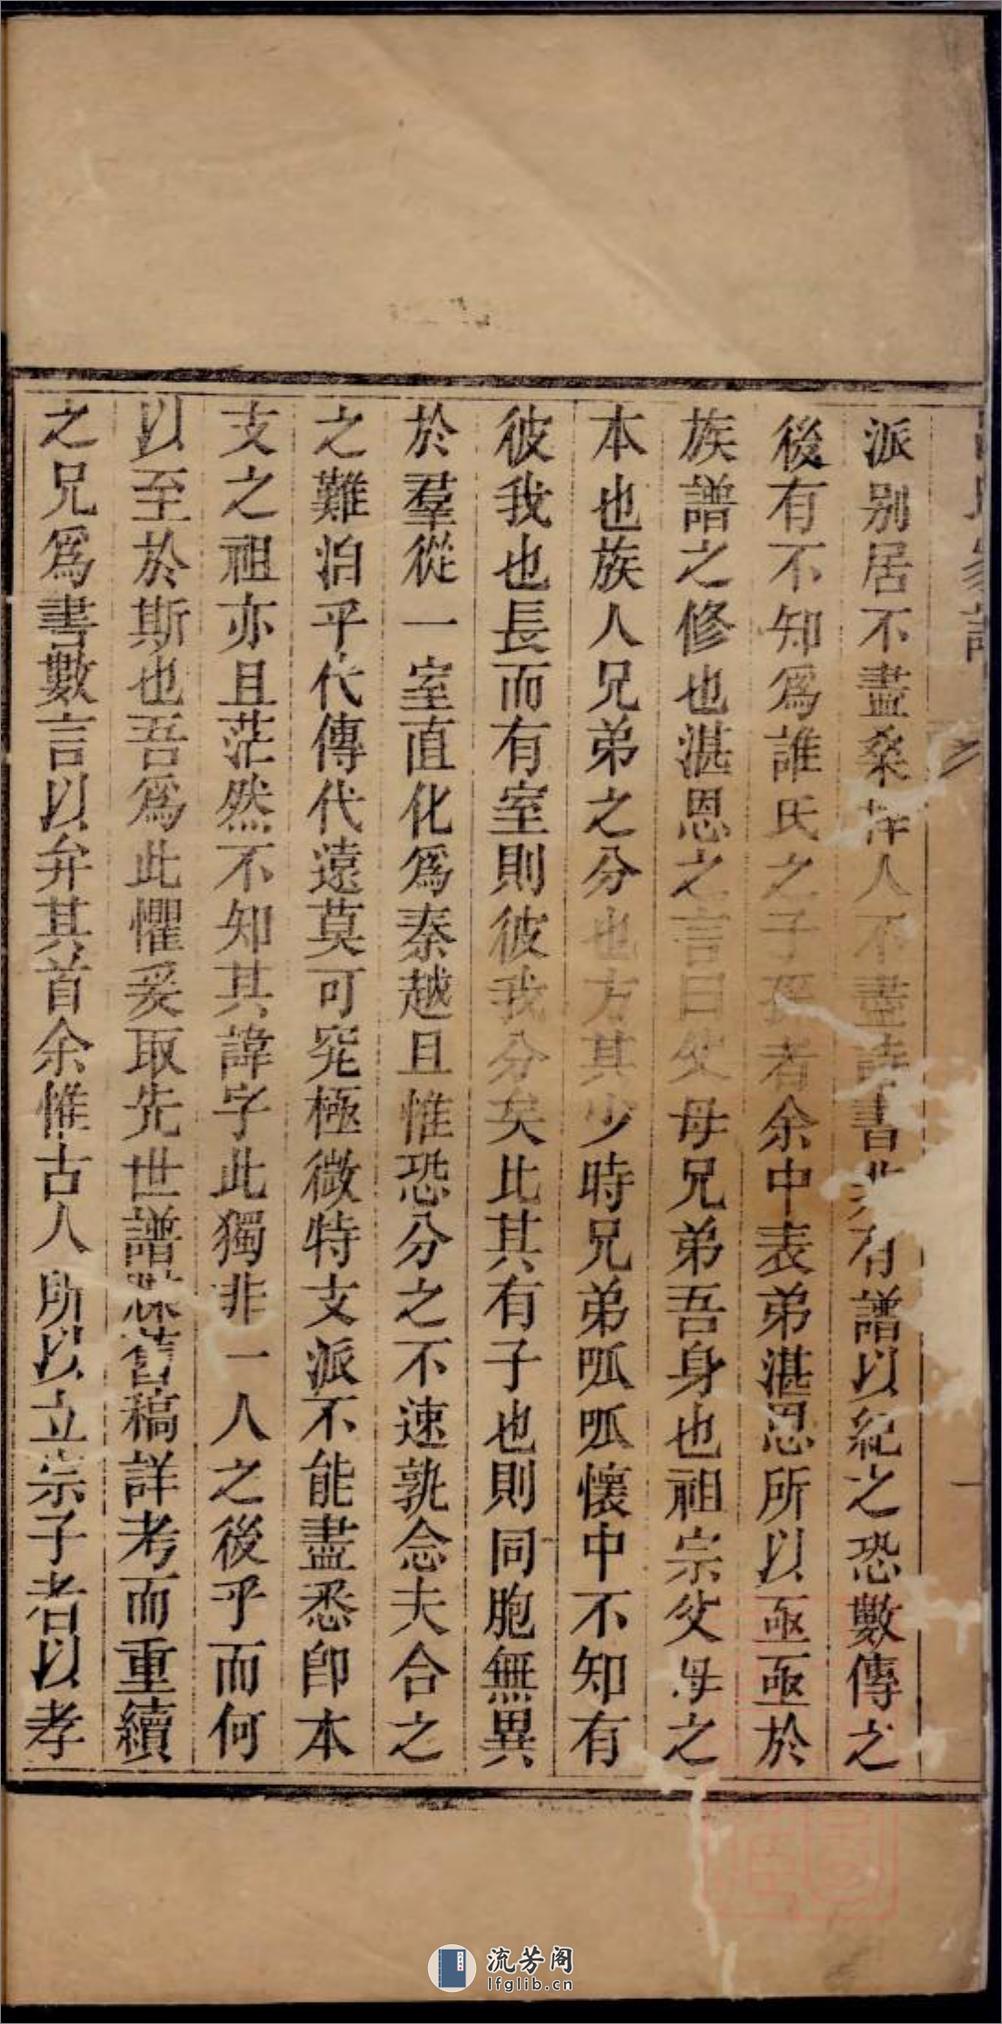 派别居不盡桑梓人不盡詩書非有譜以紀之恐數傳之
後有不知爲誰氏之子孫者余中表弟湛恩所以亟亟於
族譜之修也湛恩之言曰父母兄弟吾身也祖宗父母之
本也族人兄弟之分也方其少時兄弟呱呱懷中不知有
彼我也長而有室則彼我分矣比其有子也則同胞無異
於羣從一室直化爲秦越且惟恐分之不速孰念夫合之
之難洎乎代傳代遠莫可究極微特支派不能盡悉卽本
支之祖亦且茫然不知其諱字此獨非一人之後乎而何
以至於斯也吾爲此懼爰取先世譜牒舊稿詳考而重續
之兄爲書數言以弁其首余惟古人所以立宗子者以孝
流芳阁
lfglib.cn